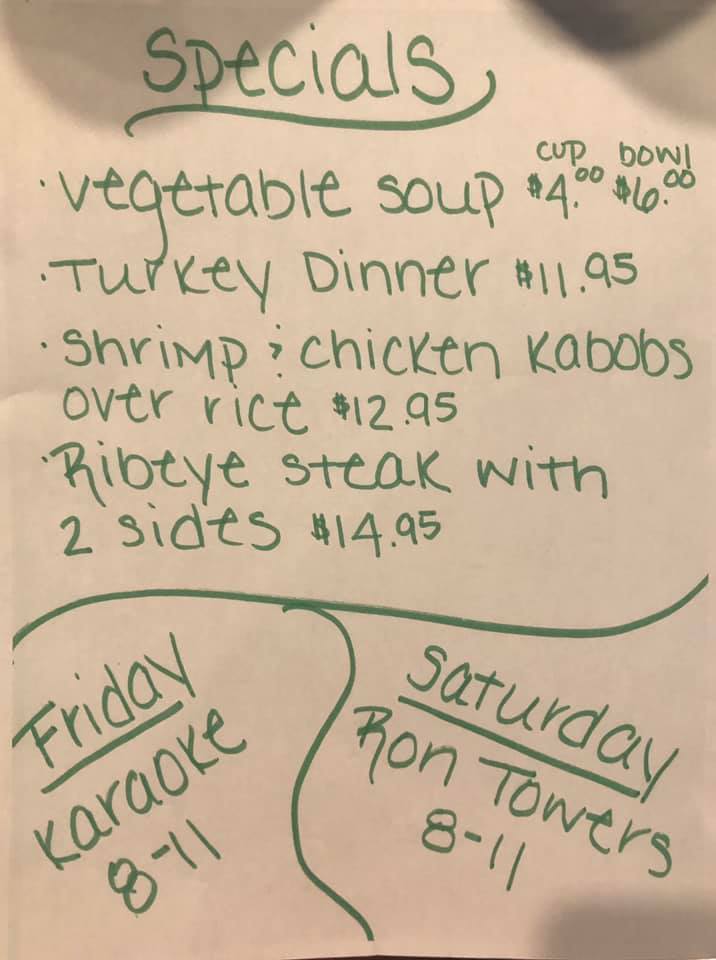 Specials
cup bowl
· Vegetable soup $4.00 $6.00
· Turkey Dinner $11.95
· Shrimp & chicken Kabobs
over rice $12.95
· Ribeye steak with
2 sides $14.95
Friday
Karaoke
8-11
Saturday
Ron Towers
8-11